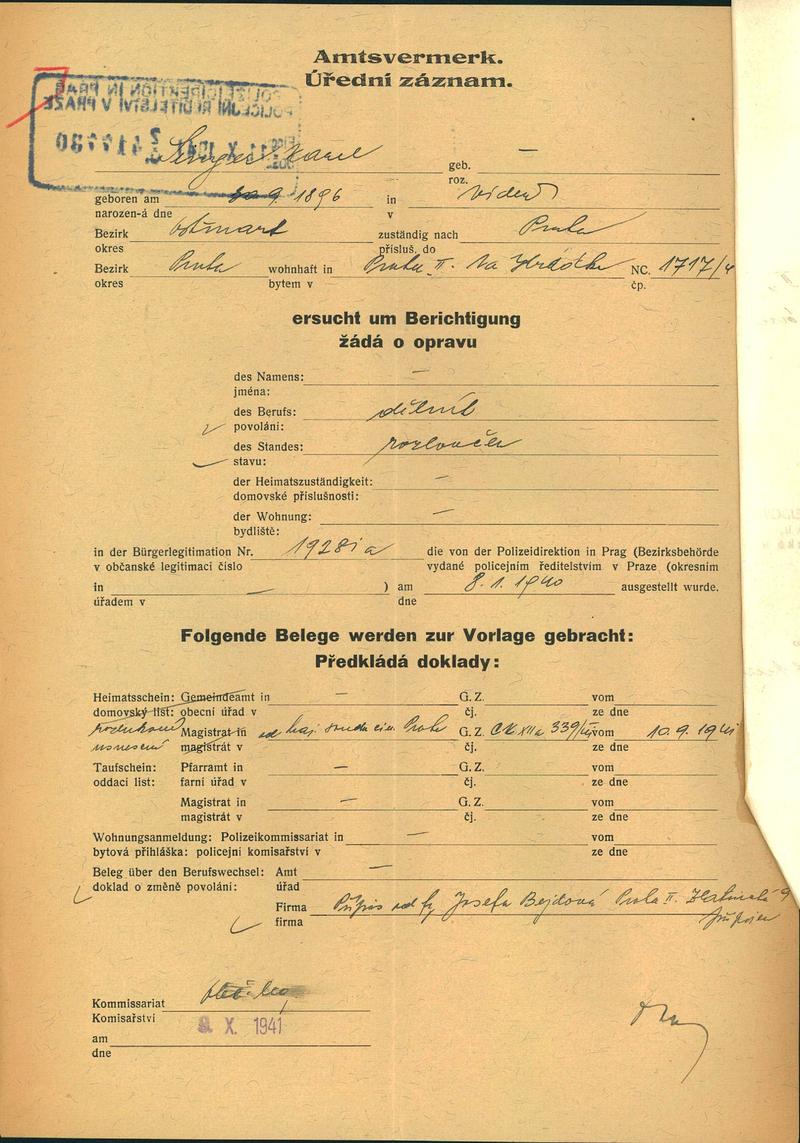 Amtsvermerk.
Úřední záznam.
POLIZEIDIREKTION IN PRAG
POLICEJNÍ ŘEDITELSTVÍ V PRAZE
Karel geb. —
roz.
geboren am 9. 1896 in Vídeň
narozen-á dne v
Bezirk Ostmark zuständig nach Praha
okres přísluš. do
Bezirk Praha wohnhaft in Praha II. Na NC. 1717/4
okres bytem v čp.
ersucht um Berichtigung
žádá o opravu
des Namens: —
jména:
des Berufs: dělník
povolání:
des Standes: rozloučen
stavu:
der Heimatszuständigkeit: —
domovské příslušnosti:
der Wohnung: —
bydliště:
in der Bürgerlegitimation Nr. 1928 die von der Polizeidirektion in Prag (Bezirksbehörde
v občanské legitimaci číslo vydané policejním ředitelstvím v Praze (okresním
in — ) am 8. 1. 1940 ausgestellt wurde.
úřadem v dne
Folgende Belege werden zur Vorlage gebracht:
Předkládá doklady:
Heimatsschein: Gemeindeamt in — G. Z. vom
domovský list: obecní úřad v čj. ze dne
Magistrat in od kraj. soudu civ. Praha G. Z. Ck XII a 339/ vom 10. 9. 1941
usnesení magistrát v čj. ze dne
Taufschein: Pfarramt in — G. Z. vom
oddací list: farní úřad v čj. ze dne
Magistrat in — G. Z. vom
magistrát v čj. ze dne
Wohnungsanmeldung: Polizeikommissariat in — vom
bytová přihláška: policejní komisařství v ze dne
Beleg über den Berufswechsel: Amt —
doklad o změně povolání: úřad
Firma Přípis od fy Josefa Bejdová Praha II.
firma
Kommissariat
Komisařství
X. 1941
am
dne